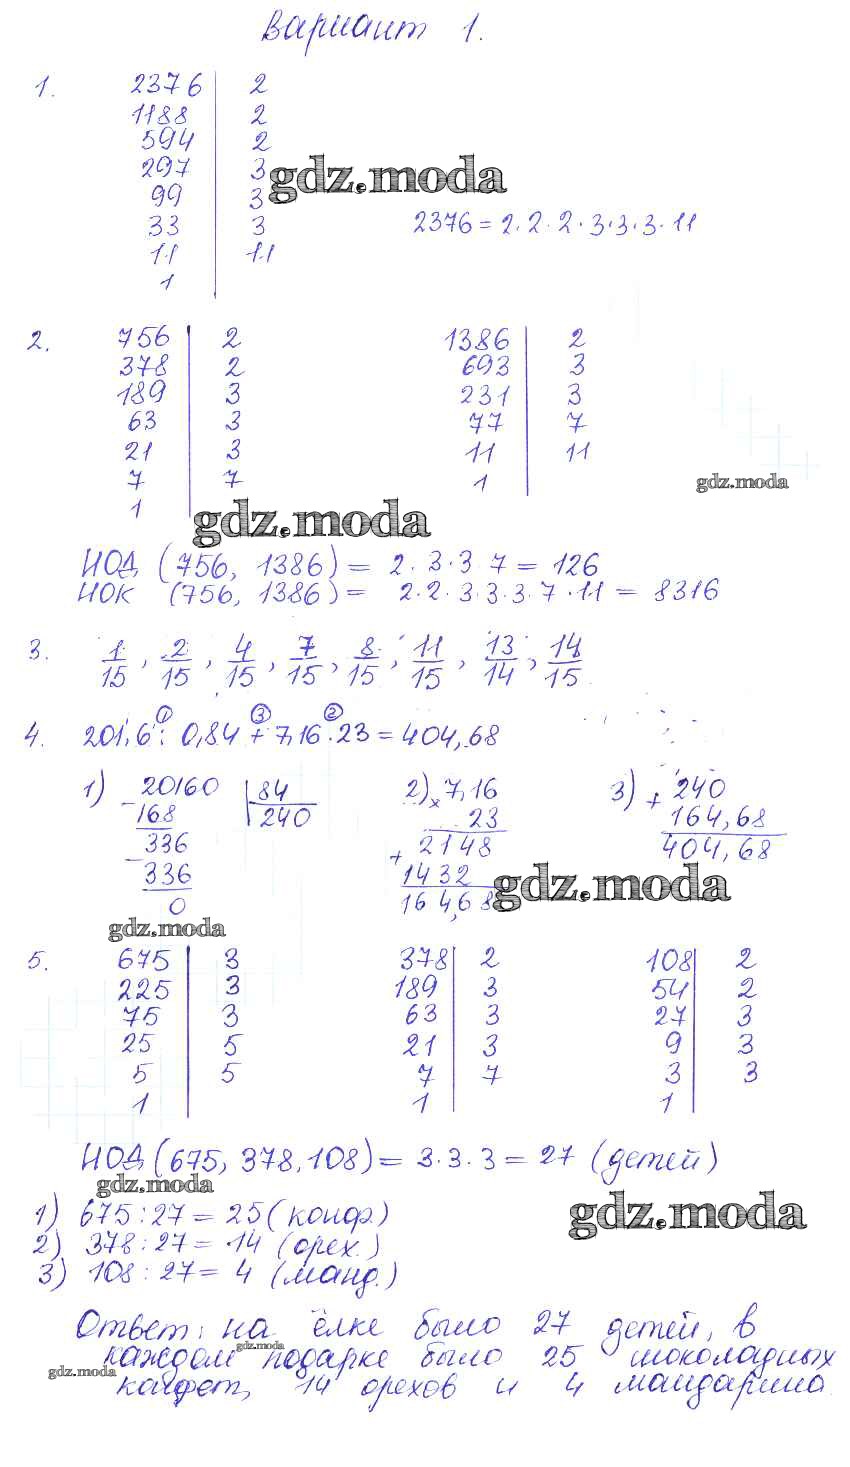 Вариант 1.
1. 2376 | 2
1188 | 2
594 | 2
297 | 3
gdz.moda
99 | 3
33 | 3
2376 = 2·2·2·3·3·3·11
11 | 11
1
2. 756 | 2 1386 | 2
378 | 2 693 | 3
189 | 3 231 | 3
63 | 3 77 | 7
21 | 3 11 | 11
7 | 7 1
gdz.moda
1
gdz.moda
НОД (756, 1386) = 2·3·3·7 = 126
НОК (756, 1386) = 2·2·3·3·3·7·11 = 8316
3. 1/15, 2/15, 4/15, 7/15, 8/15, 11/15, 13/14, 14/15
① ③ ②
4. 201,6 : 0,84 + 7,16·23 = 404,68
1) 20160 | 84 2) 7,16 3) + 240
- 168 240 × 23 164,68
336 + 2148 404,68
- 336 1432
0 164,68
gdz.moda
gdz.moda
5. 675 | 3 378 | 2 108 | 2
225 | 3 189 | 3 54 | 2
75 | 3 63 | 3 27 | 3
25 | 5 21 | 3 9 | 3
5 | 5 7 | 7 3 | 3
1 1 1
НОД (675, 378, 108) = 3·3·3 = 27 (детей)
gdz.moda
1) 675 : 27 = 25 (конф.)
gdz.moda
2) 378 : 27 = 14 (орех.)
3) 108 : 27 = 4 (манд.)
Ответ: на ёлке было 27 детей, в
gdz.moda
каждом подарке было 25 шоколадных
gdz.moda
конфет, 14 орехов и 4 мандарина